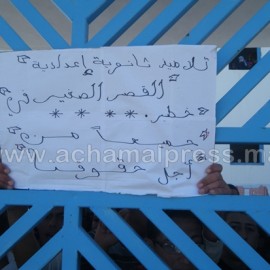 تلاميد ثانوية إعدادية
"القصر الصغير في
خطر. * * * *
جميعاً من
أجل حقوقنا"
www.achamalpress.ma